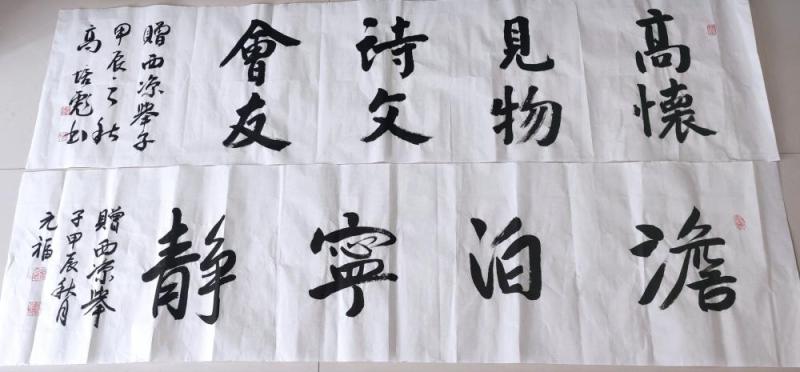 高懷
見物
诗文
會友
贈西凉舉子
甲辰之秋
高培彪书
澹泊寧静
贈西凉舉
子甲辰秋月
元福